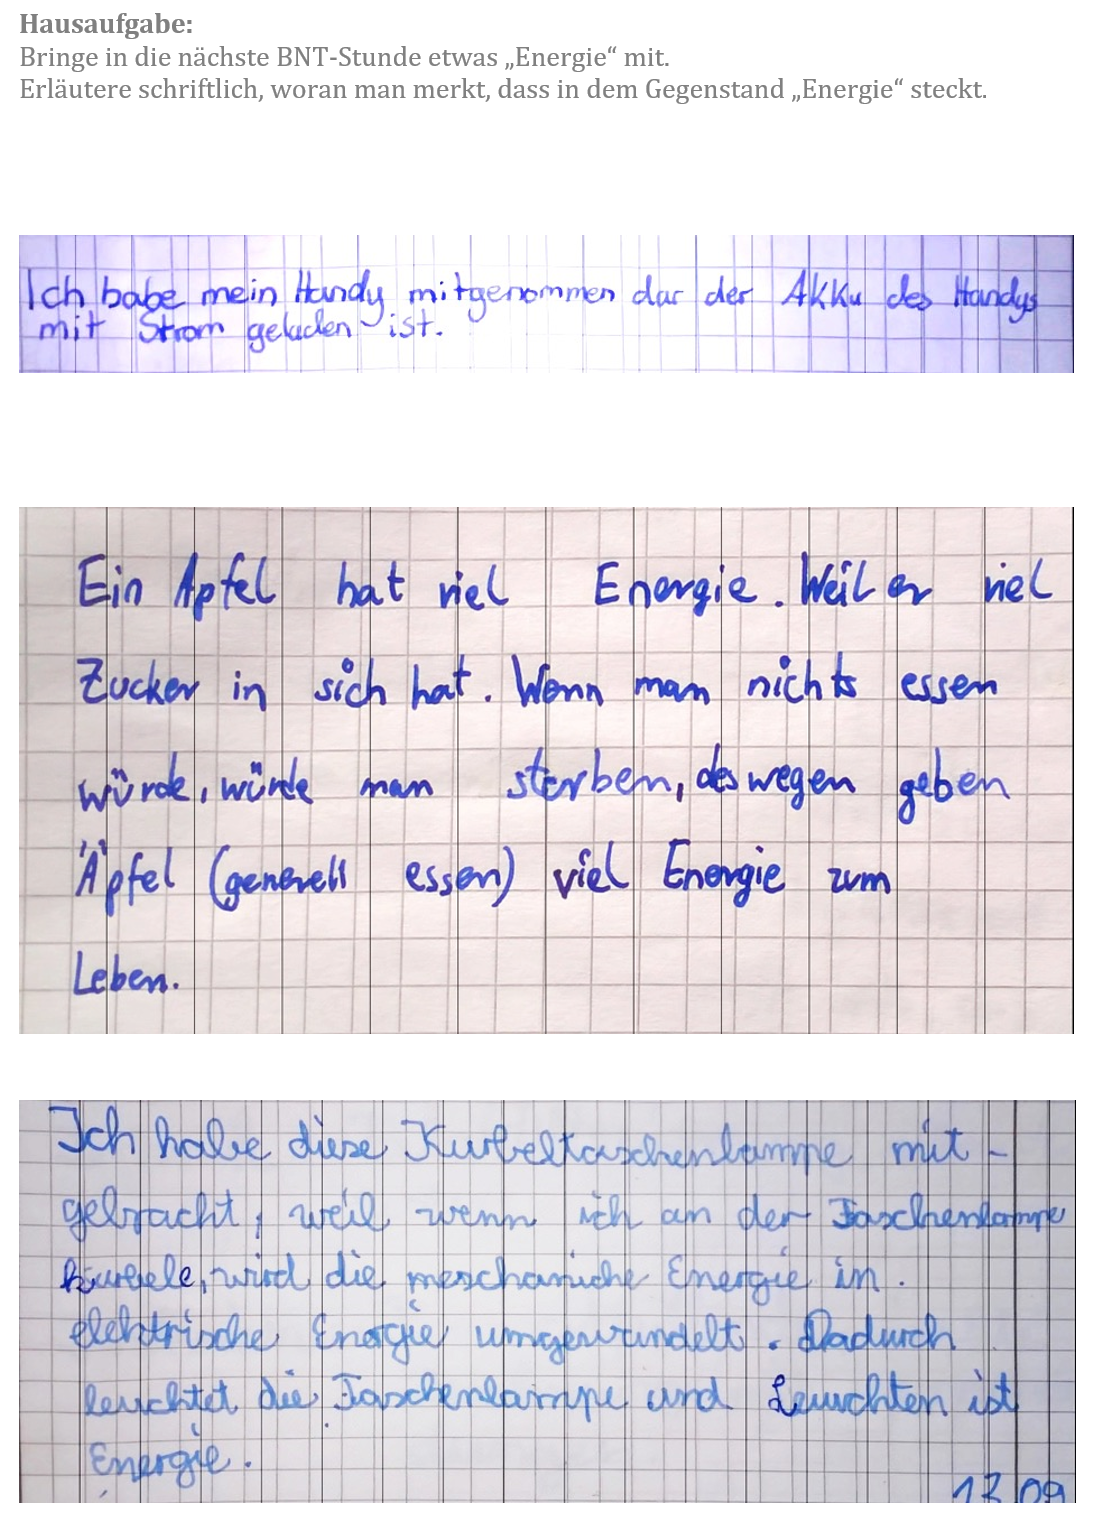 Hausaufgabe:
Bringe in die nächste BNT-Stunde etwas „Energie“ mit.
Erläutere schriftlich, woran man merkt, dass in dem Gegenstand „Energie“ steckt.
Ich habe mein Handy mitgenommen dar der Akku des Handys
mit Strom geladen ist.
Ein Apfel hat viel Energie. Weil er viel
Zucker in sich hat. Wenn man nichts essen
würde, würde man sterben, deswegen geben
Äpfel (generell essen) viel Energie zum
Leben.
Ich habe diese Kurbeltaschenlampe mit-
gebracht, weil wenn ich an der Taschenlampe
wird die meschaniche Energie in.
elektrische Energie umgewandelt. Dadurch
leuchtet die Taschenlampe und Leuchten ist
Energie.
13.09